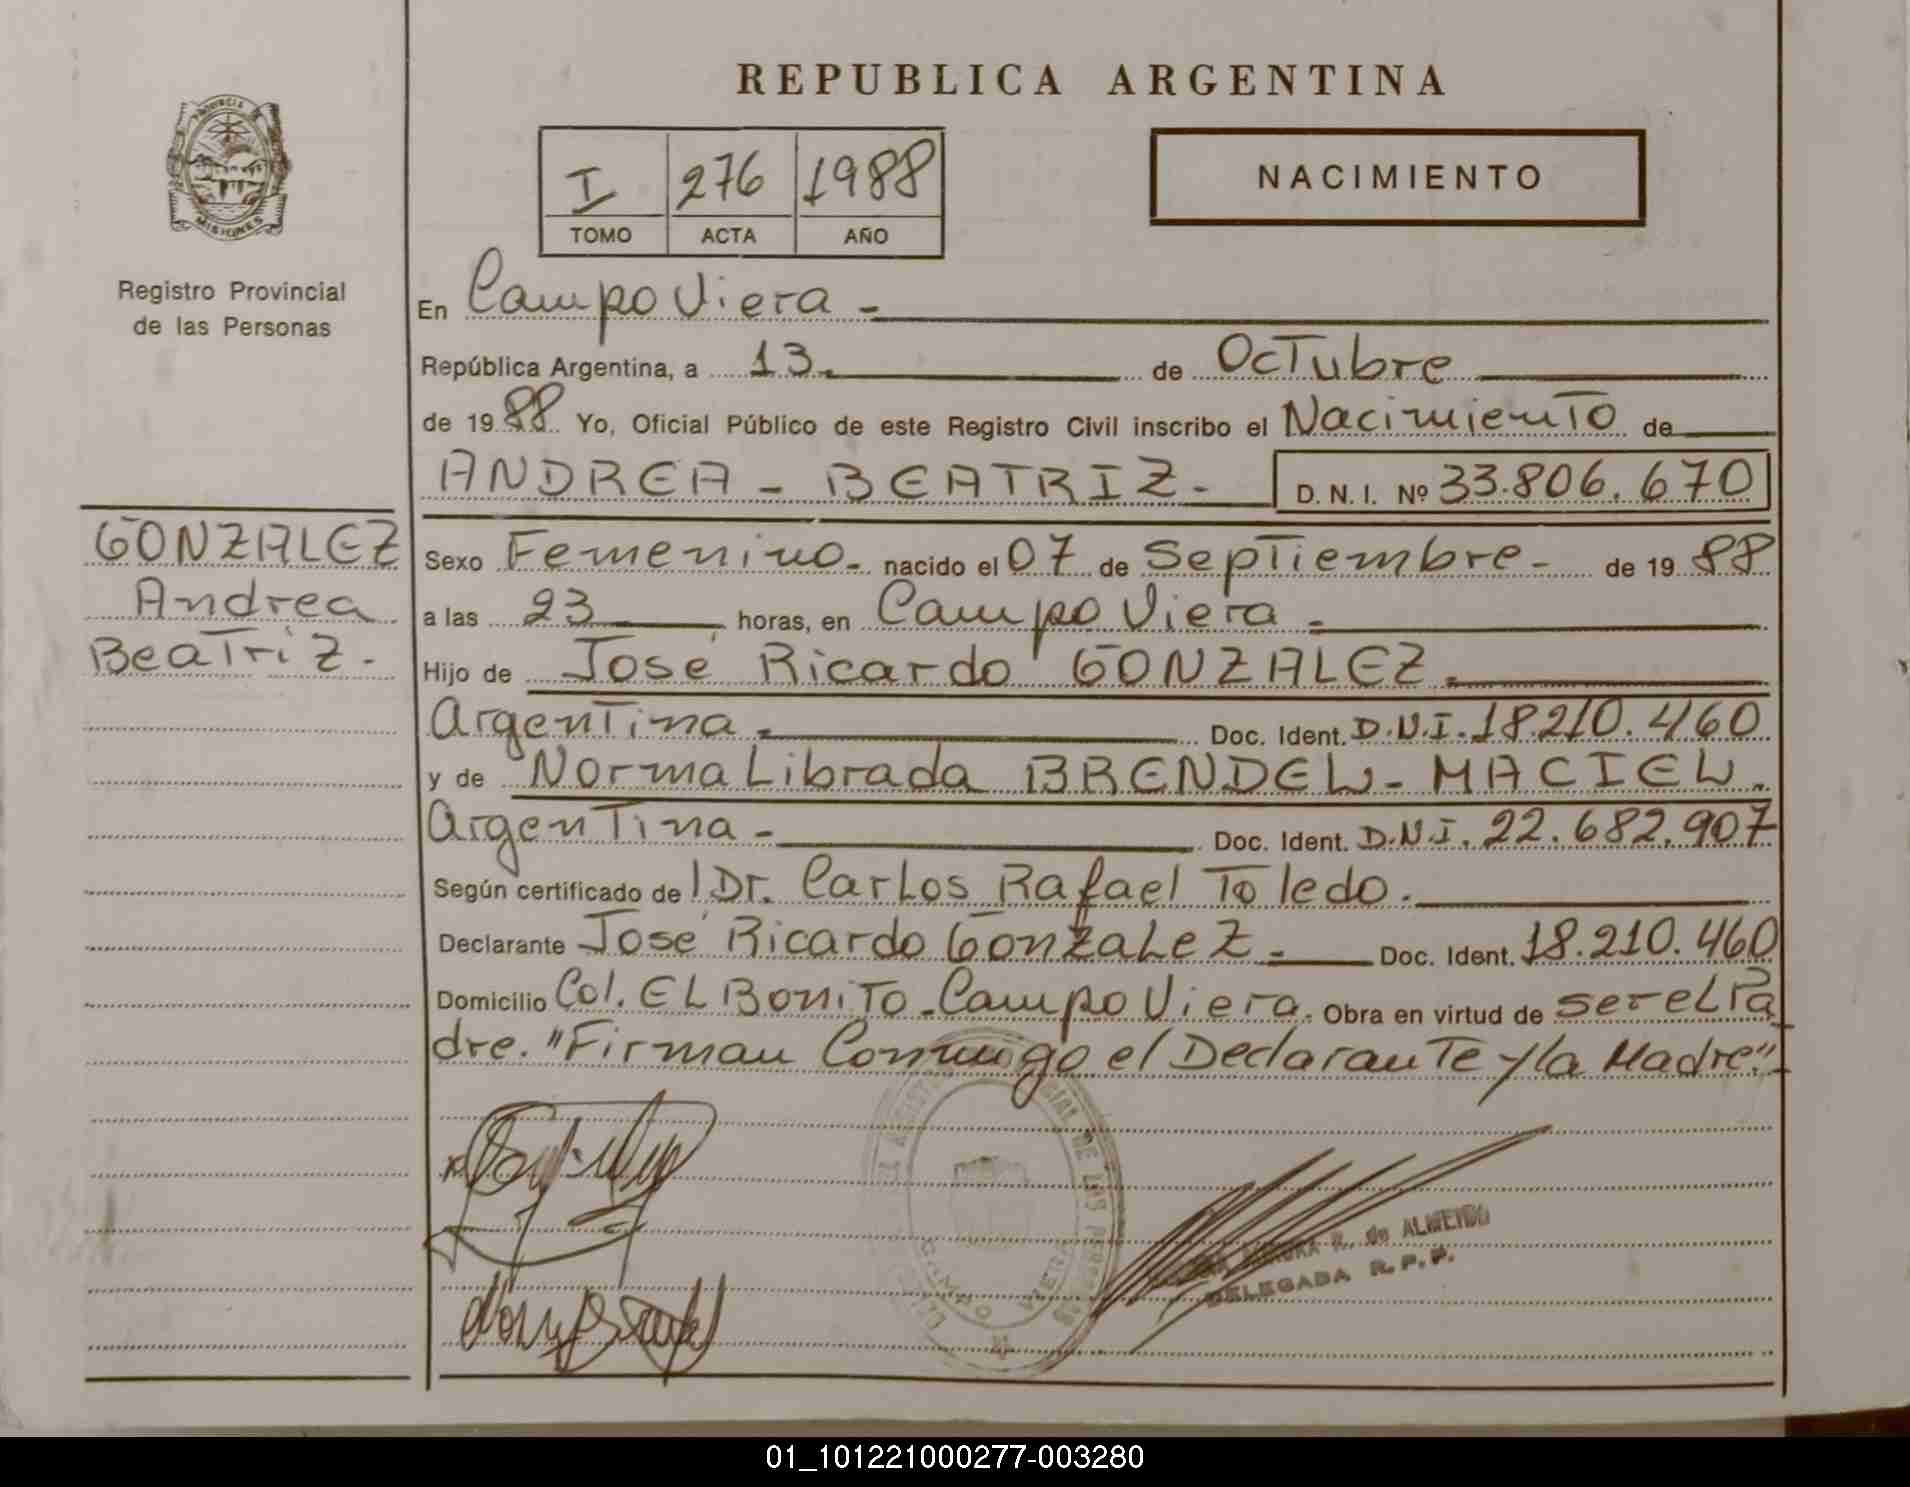 REPUBLICA ARGENTINA
PROVINCIA
MISIONES
Registro Provincial
de las Personas
I 276 1988
TOMO ACTA AÑO
NACIMIENTO
En Campo Viera -
República Argentina, a 13. de Octubre
de 1988 Yo, Oficial Público de este Registro Civil inscribo el Nacimiento de
ANDREA - BEATRIZ - D. N. I. Nº 33.806.670
GONZALEZ
Andrea
Beatriz -
Sexo Femenino - nacido el 07 de Septiembre - de 1988
a las 23 horas, en Campo Viera -
Hijo de José Ricardo GONZALEZ.
Argentina - Doc. Ident. D.N.I. 18.210.460
y de Norma Librada BRENDEL - MACIEL.
Argentina - Doc. Ident. D.N.I. 22.682.907
Según certificado de Dr. Carlos Rafael Toledo.
Declarante José Ricardo Gonzalez - Doc. Ident. 18.210.460
Domicilio Col. EL Bonito - Campo Viera. Obra en virtud de ser el Pa
dre. "Firman Conmigo el Declarante y la Madre".
DE LAS
CAMPO VIERA
R. de ALMEIDA
DELEGADA R.P.P.
01_101221000277-003280